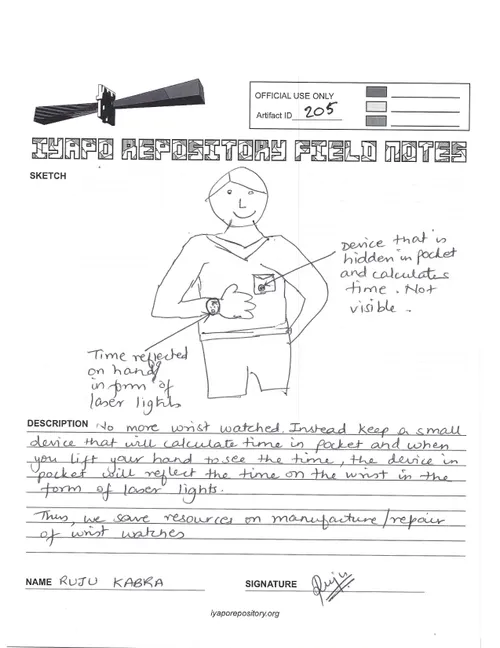 OFFICIAL USE ONLY
Artifact ID 205
IYAPO REPOSITORY FIELD NOTES
SKETCH
Device that is
hidden in pocket
and calculates
time. Not
visible.
Time reflected
on hand
in form of
laser lights
DESCRIPTION No more wrist watched. Instead keep a small
device that will calculate time in pocket and when
you lift your hand to see the time, the device in
pocket will reflect the time on the wrist in the
form of laser lights.
Thus, we save resources on manufacture/repair
of wrist watches
NAME RUJU KABRA
SIGNATURE Ruju
iyaporepository.org